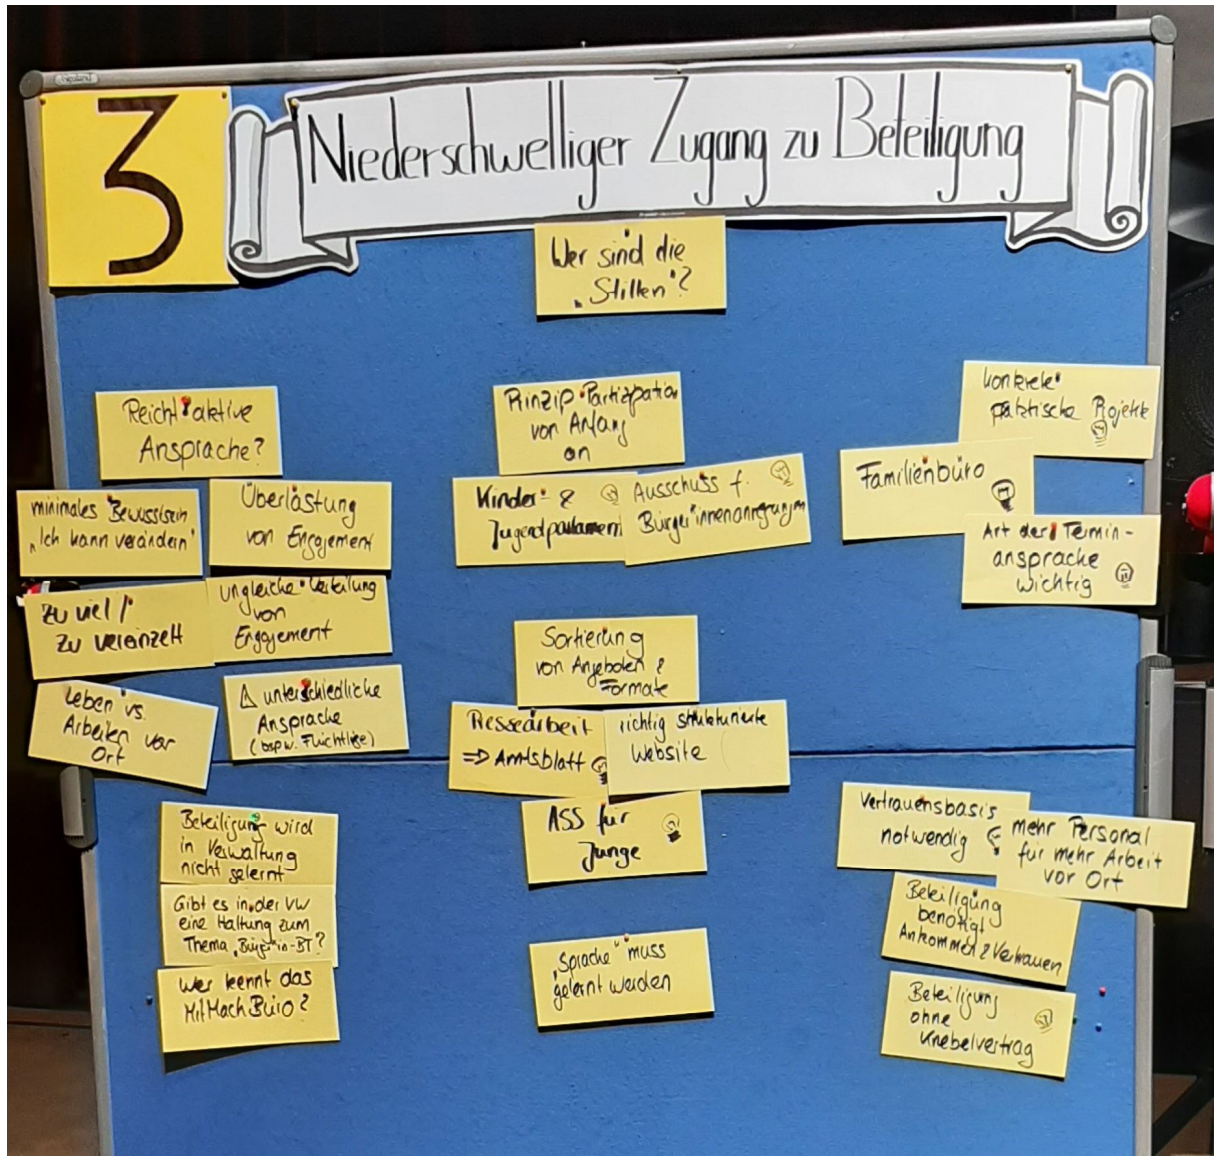 3
Niederschwelliger Zugang zu Beteiligung
Wer sind die
„Stillen"?
Reicht aktive
Ansprache?
minimales Bewusstsein
„Ich kann verändern"
Überlastung
von Engagement
zu viel /
zu vereinzelt
ungleiche Verteilung
von
Engagement
Leben vs.
Arbeiten vor
Ort
⚠ unterschiedliche
Ansprache
(bspw. Flüchtlige)
Beteiligung wird
in Verwaltung
nicht gelernt
Gibt es in der VW
eine Haltung zum
Thema „Bürg*in-BT"?
Wer kennt das
MitMachBüro?
Prinzip Partizipation
von Anfang
an
Kinder- &
Jugendparlament
Ausschuss f.
Bürger*innenanregungen
Sortierung
von Angeboten &
Formate
Pressearbeit
⇒ Amtsblatt
richtig strukturierte
Website
ASS für
Junge
„Sprache" muss
gelernt werden
konkrete
praktische Projekte
Familienbüro
Art der Termin-
ansprache
wichtig
Vertrauensbasis
notwendig
mehr Personal
für mehr Arbeit
vor Ort
Beteiligung
benötigt
Ankommen & Vertrauen
Beteiligung
ohne
Knebelvertrag